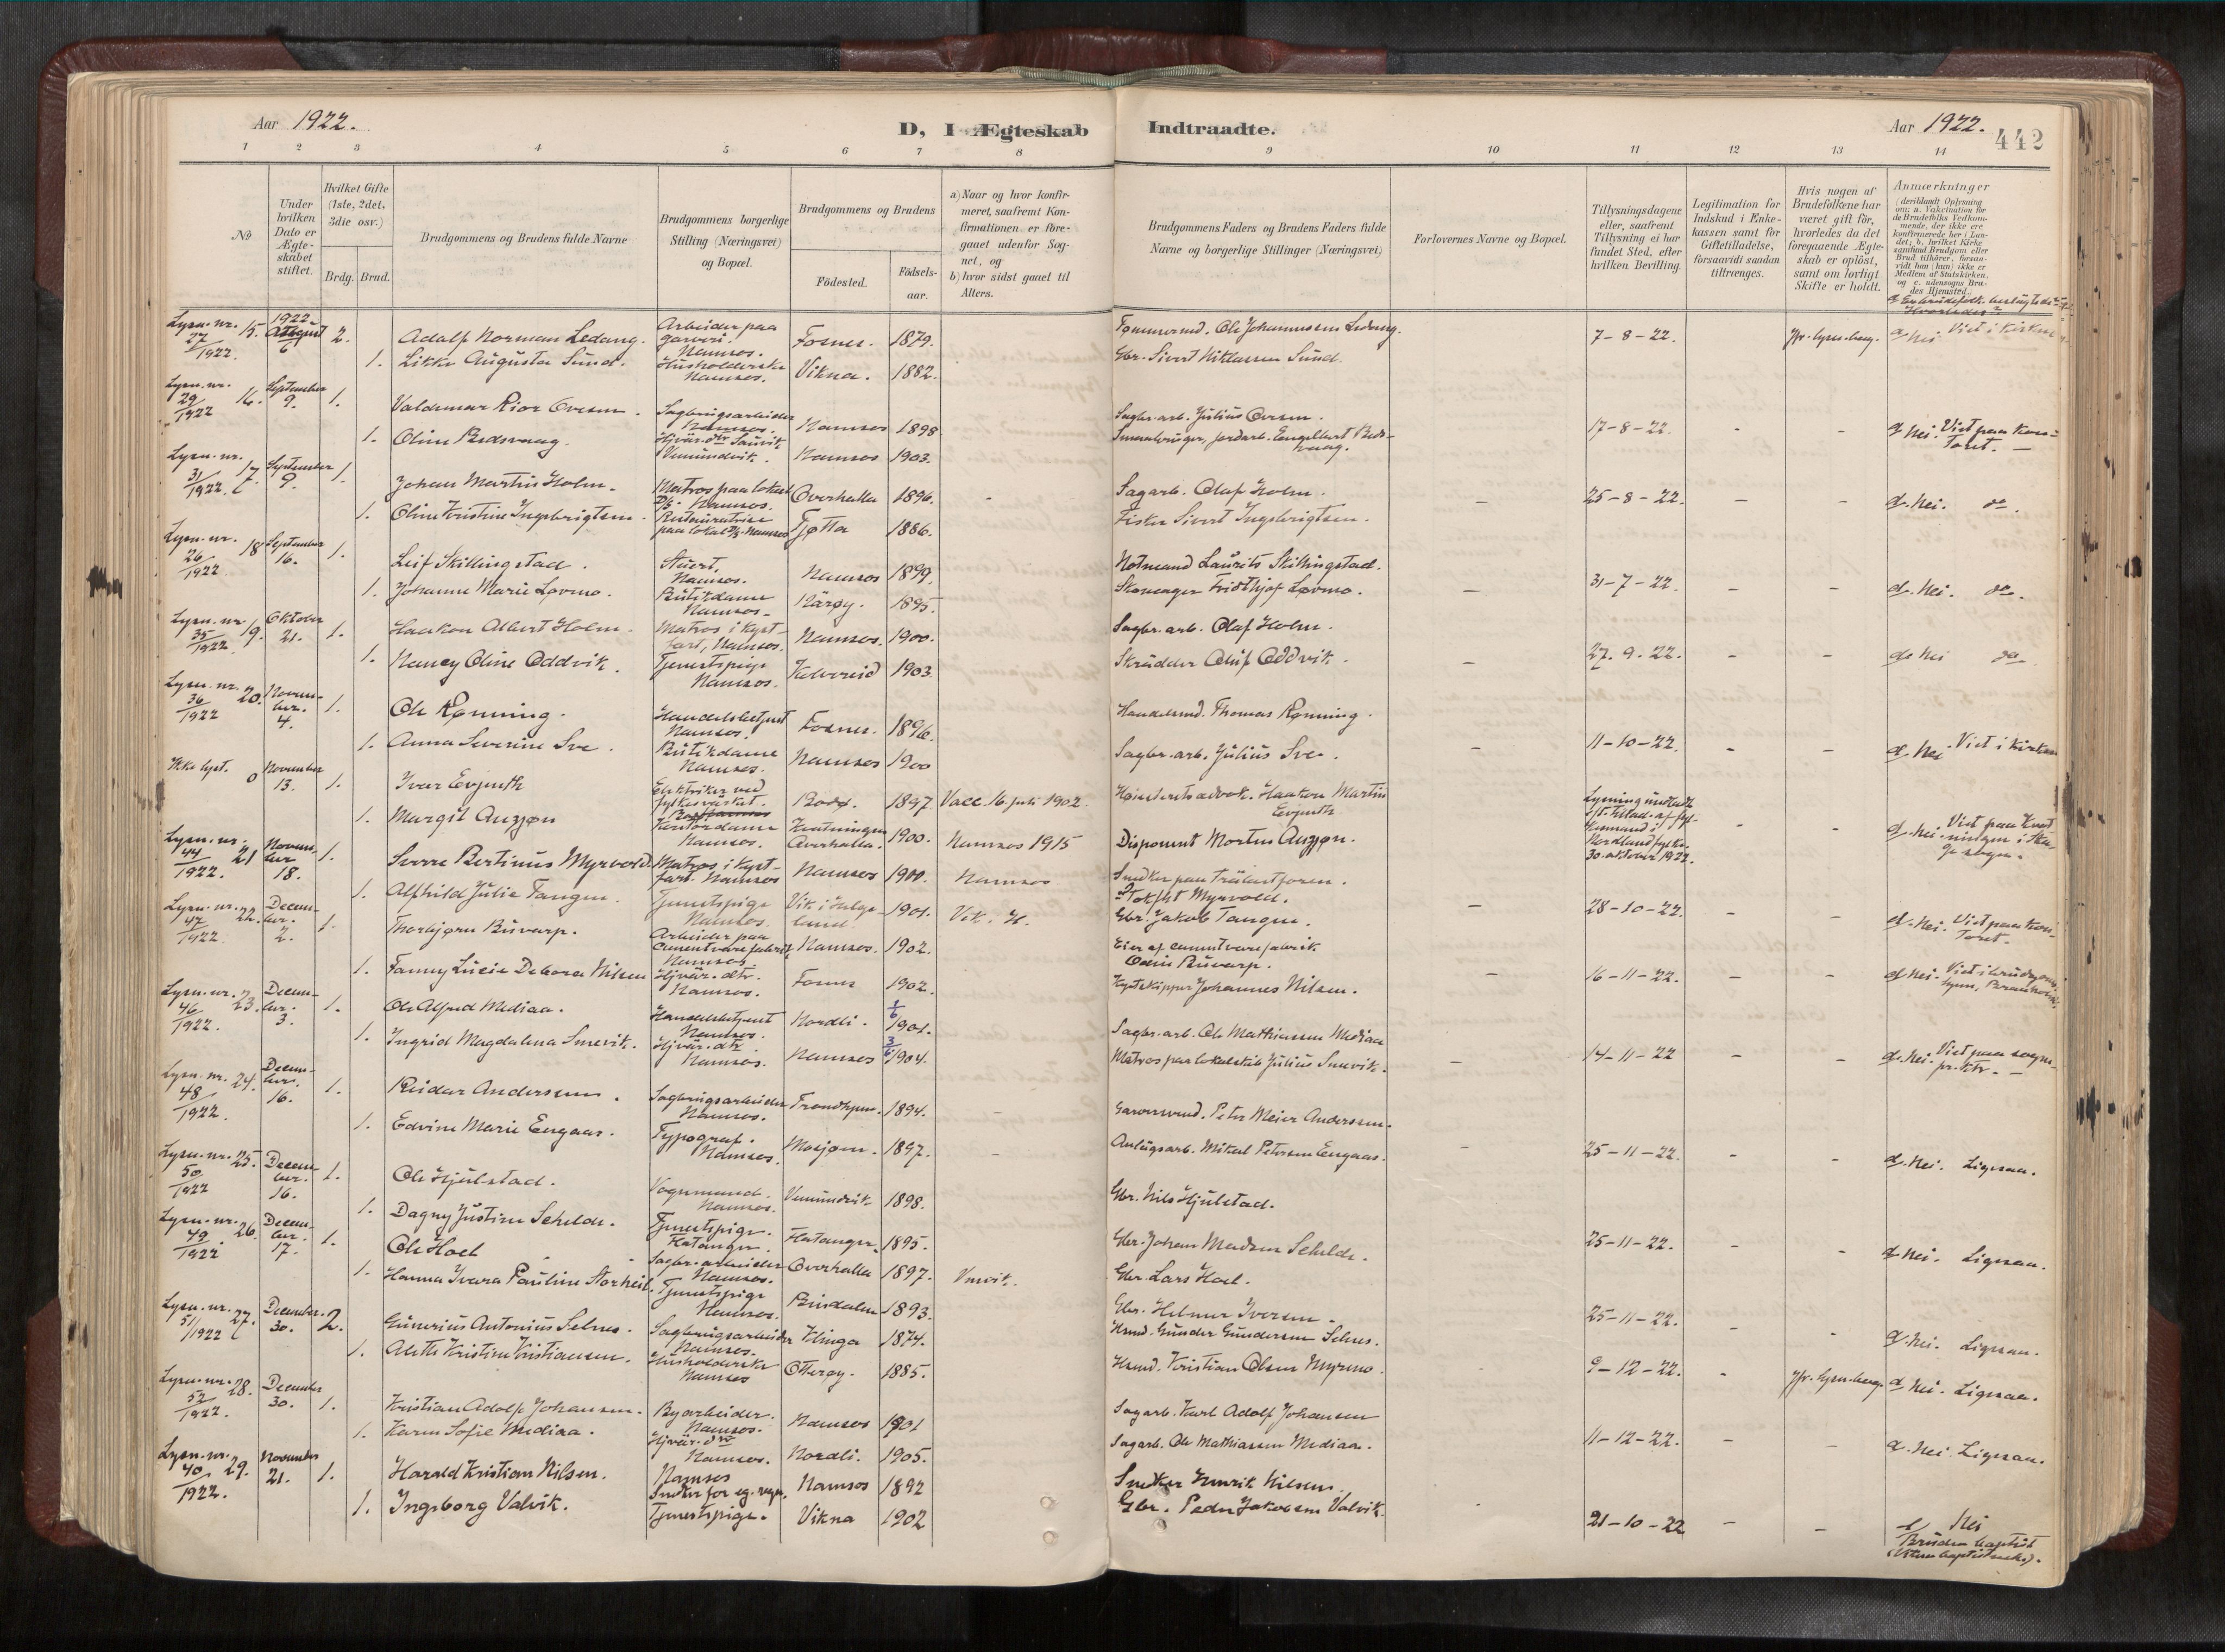 Aar 1922.
D, I Ægteskab Indtraadte.
Aar 1922.
442
1 2 3 4 5 6 7 8 9 10 11 12 13 14
No
Under hvilken Dato er Ægteskabet stiftet.
Hvilket Gifte (1ste, 2det, 3die osv.)
Brdg. Brud.
Brudgommens og Brudens fulde Navne
Brudgommens borgerlige Stilling (Næringsvei) og Bopæl.
Brudgommens og Brudens
Födested.
Födselsaar.
a) Naar og hvor konfirmeret, saafremt Konfirmationen er foregaaet udenfor Sognet, og
b) hvor sidst gaaet til Alters.
Brudgommens Faders og Brudens Faders fulde Navne og borgerlige Stillinger (Næringsvei)
Forlovernes Navne og Bopæl.
Tillysningsdagene eller, saafremt Tillysning ei har fundet Sted, efter hvilken Bevilling.
Legitimation for Indskud i Enkekassen samt för Giftetilladelse, forsaavidt saadan tiltrænges.
Hvis nogen af Brudefolkene har været gift för, hvorledes da det foregaaende Ægteskab er oplöst, samt om lovligt Skifte er holdt.
Anmærkninger (deriblandt Oplysning om: a. Vakcination for de Brudefolks Vedkommende, der ikke ere konfirmerede her i Landet; b. hvilket Kirkesamfund Brudgom eller Brud tilhörer, forsaavidt han (hun) ikke er Medlem af Statskirken, og c. udensogns Brudes Hjemsted.)
d. Er brudefolk. beslægtede? Hvorledes?
Lysn. nr. 27/1922. 15. 1922 August 6 2. Adolf Norman Ledang. Arbeider paa garveri. Namsos. Fosnes. 1879. Tømmermd. Ole Johannessen Ledang. 7-8-22. Jfr. lysn. bevg. d. Nei. Viet i kirken
1. Likke Augusta Sund. Husholderske Namsos. Vikna. 1882. Gbr. Sivert Niklassen Sund.
Lysn. nr. 29/1922 16. September 9. 1. Valdemar Rior Ovesen. Sagbrugsarbeider Namsos. Namsos 1898 Sagbr. arb. Julius Ovesen. 17-8-22. - - d. Nei. Viet paa kontoret. —
1. Oline Bedsvaag. Hjvær. dtr Sauvik Vemundvik. Namsos 1903. Smaabruger, jordarb. Engelbert Bedsvaag.
Lysn. nr. 31/1922 17. September 9. 1. Johan Martin Holm. Matros paa lokal D/S. Namsos. Overhalla 1896. - Sagarb. Olaf Holm. — 25-8-22. - - d. Nei. do.
1. Oline Kristine Ingebrigtsen. Restauratrise paa lokal D/S. Namsos Tjøtta 1886. Fisker Sivert Ingebrigtsen.
Lysn. nr. 26/1922. 18 September 16. 1. Leif Skillingstad. Stuert, Namsos. Namsos 1899. Notmand Laurits Skillingstad. — 31-7-22. - - d. Nei. do.
1. Johanne Marie Løvmo. Butikdame Namsos. Nærøy. 1895. Skomager Fridthjof Løvmo.
Lysn. nr. 35/1922. 19. Oktober 21. 1. Haakon Albert Holm. Matros i kystfart, Namsos. Namsos. 1900. Sagbr. arb. Olaf Holm. — 27. 9. 22. - - d. Nei do
1. Nancy Oline Oddvik. Tjenestpige Namsos. Kolvereid 1903. Skrædder Oluf Oddvik.
Lysn. nr. 36/1922 20. November. 4. 1. Ole Rønning. Handelsbetjent Namsos. Fosnes. 1896. Handelsmd. Thomas Rønning. — 11-10-22. - - d. Nei. Viet i kirken
1. Anna Severine Sve. Butikdame Namsos. Namsos 1900 Sagbr. arb. Julius Sve.
Ikke lyst. 0 November 13. 1. Iver Evjenth Elektriker ved fylkesverket. Bodø. 1897. Vacc. 16. juli 1902. Høiesteretsadvok. Haakon Martin Evjenth Lysning undladt 30. oktober 1922. - - d. Nei.
1. Margit Auzjøn Kontordame Namsos. Overhalla. 1900. Namsos 1915 Disponent Morten Auzjøn.
Lysn. nr. 44/1922. 21 November 18. 1. Sverre Bertinus Myrvold. Matros i kystfart. Namsos Namsos 1900. Namsos Snedker paa Trælastforen. Myrvold. — 28-10-22. - - d. Nei. Viet paa kontoret.
1. Alfhild Julie Tangen. Tjenestpige Namsos. Vik i Helgeland. 1901. Vik. H. Gbr. Jakob Tangen.
Lysn. nr. 47/1922. 22. December. 2. 1. Thorbjørn Buvarp. Arbeider paa cementvarefabrik Namsos. Namsos. 1902. Eier af cementvarefabrik Odin Buvarp. — 16-11-22. - - d. Nei.
1. Fanny Lucie Debora Nilsen Hjvær. dtr. Namsos. Fosnes 1902. Kystskipper Johannes Nilsen.
Lysn. nr. 46/1922. 23. December. 3. 1. Ole Alfred Mediaa. Handelsbetjent Namsos. Nordli. 1901. Sagbr. arb. Ole Mathiassen Mediaa — 14-11-22 - - d. Nei.
1. Ingrid Magdalena Smevik. Hjvær. dtr. Namsos. Namsos 1904. Matros paa lokalskib Julius Smevik.
Lysn. nr. 48/1922. 24. December. 16. 1. Reidar Anderssen. Sagbrugsarbeider Namsos. Trondhjem. 1894. - Garversvend. Peter Meier Anderssen. 25-11-22. - - d. Nei. Ligesaa.
1. Edvine Marie Engaas. Typograf. Namsos. Mosjøen. 1897. - Anlægsarb. Mikael Petersen Engaas.
Lysn. nr. 50/1922 25. December. 16. 1. Ole Hjulstad. Vognmand. Namsos. Vemundvik 1898. Gbr. Nils Hjulstad. 25-11-22. - - d. Nei. Ligesaa.
1. Dagny Justine Schelde. Tjenestpige. Flatanger. Flatanger. 1895. Gbr. Johan Madsen Schelde.
Lysn. nr. 49/1922. 26. December. 17. 1. Ole Hoel Sagbr. arbeider Namsos. Overhalla 1897. Gbr. Lars Hoel. 25-11-22. - - d. Nei. Ligesaa.
1. Hanna Ivara Pauline Storheil. Tjenestpige Namsos. Bindalen 1893. Gbr. Helmer Iversen.
Lysn. nr. 51/1922 27. December. 30. 2. Gunerius Antonius Selnes. Sagbrugsarbeider Namsos. Klinga 1874. Hsmd. Gunder Gundersen Selnes. 9-12-22. - Jfr. lysn. bevg. d. Nei. Ligesaa.
1. Aletta Kristine Kristiansen. Husholderske Namsos Otterøy. 1885. Hsmd. Kristian Olsen Myrmo.
Lysn. nr. 52/1922. 28. December 30. 1. Kristian Adolf Johansen. Byarbeider. Namsos. Namsos 1901 Sagarb. Karl Adolf Johansen 11-12-22. - - d. Nei. Ligesaa.
1. Karen Sofie Mediaa. Hjvær. dtr Namsos. Nordli. 1905. Sagarb. Ole Mathiassen Mediaa.
Lysn. nr. 40/1922. 29. November 21. 1. Harald Kristian Nilsen. Namsos Snedker for eg. regn. Namsos 1892 Snedker Henrik Nilsen. 21-10-22 - - d Nei
1. Ingeborg Valvik. Tjenestpige. Vikna 1902 Gbr. Peder Jakobsen Valvik. Bruden baptist